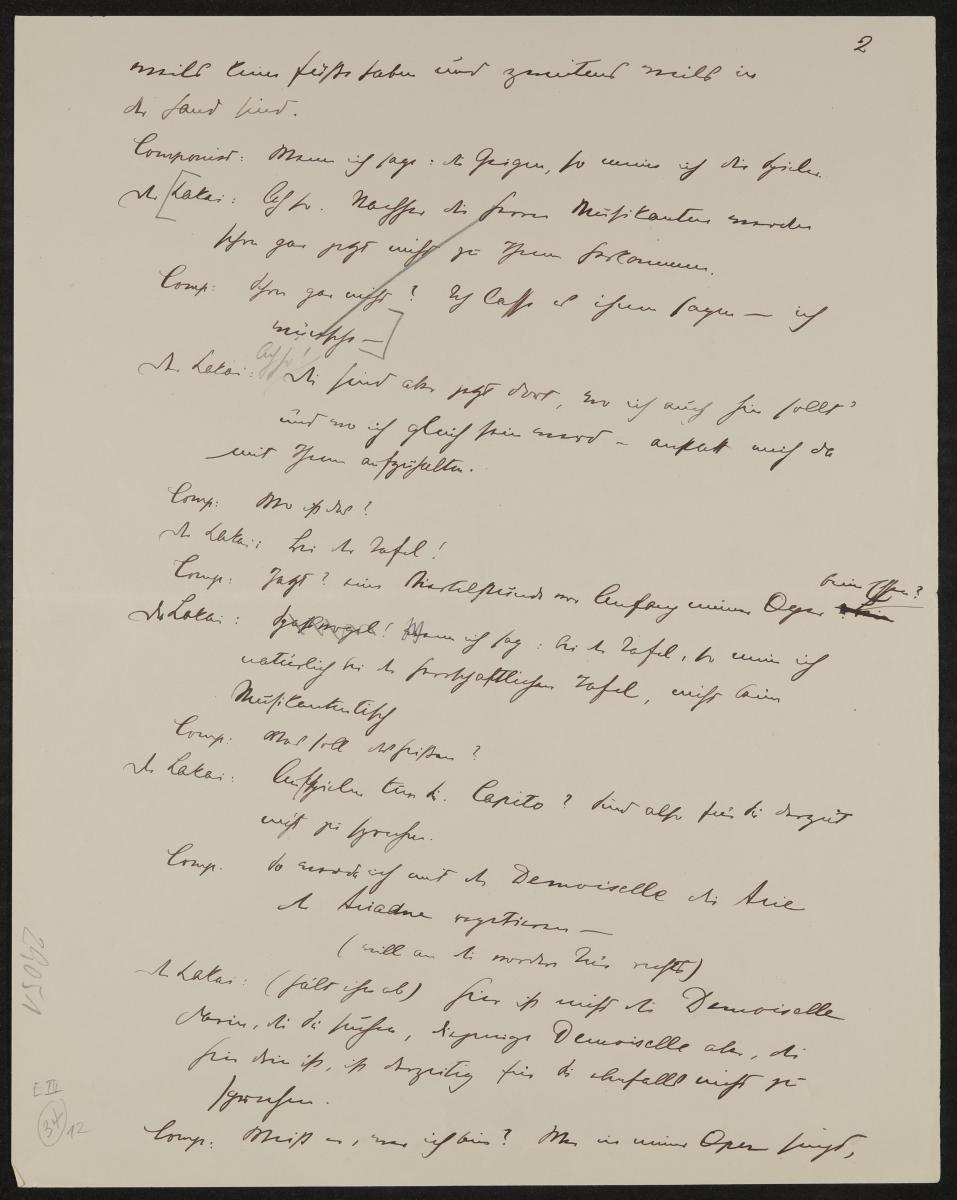 2
weils keine Füße haben und zweitens weils in
der Hand sind.
Componist: Wenn ich sage: die Geigen, so meine ich die Spieler.
der [Lakai: Ach so. Nachher die Herren Musikanten werden
schon gar jetzt nicht zu Ihnen herkommen.
Comp: Schon gar nicht? Ich lasse es ihnen sagen — ich
wünsche —]
Ach so!
der Lakai: die sind aber jetzt dort, wo ich auch hin sollt'
und wo ich gleich sein werd — anstatt mich da
mit Ihnen aufzuhalten.
Comp: Wo ist das?
der Lakai: bei der Tafel!
Comp: Jetzt? eine Viertelstunde vor Anfang meiner Oper beim Essen?
der Lakai: Spaßvogel! Wenn ich sag: bei der Tafel, so mein ich
natürlich bei der herrschaftlichen Tafel, nicht beim
Musikantentisch
Comp: Was soll das heißen?
der Lakai: Aufspielen tun sie. Capito? Sind also für Sie derzeit
nicht zu sprechen.
Comp. So werde ich mit der Demoiselle die Arie
der Ariadne repetieren —
(will an die vordere Tür rechts)
der Lakai: (hält ihn ab) hier ist nicht die Demoiselle
darin, die Sie suchen, diejenige Demoiselle aber, die
hier drin ist, ist derzeitig für Sie ebenfalls nicht zu
sprechen.
Comp: Weiß er, wer ich bin? Wer in meiner Oper singt,
29051
E III
34
12